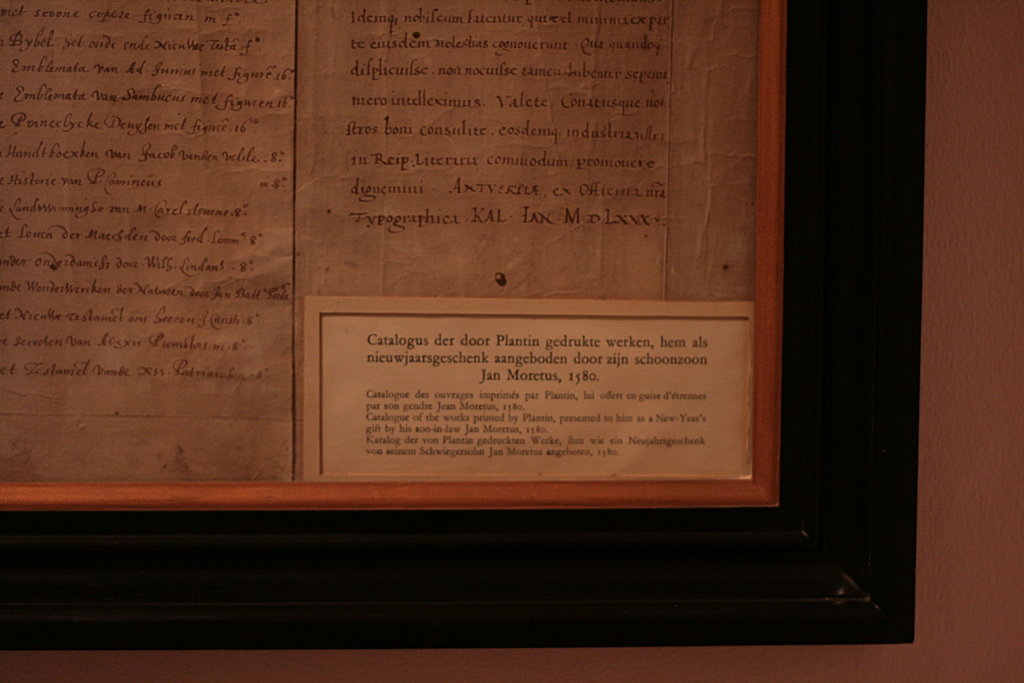 met scoone copere figuren in f°.
Bybel. het oude ende Nieuwe Testā f°.
Emblemata van Ad. Junius met figurē 16.°
Emblemata van Sambucus met figuren 16.
Princelycke Devysen met figurē. 16.°
Handtboexken van Jacob vanden velde. 8.°
Historie van P. Comineus in 8.°
Landtwinninghe van M. Carel stevens. 8.°
Door Wilh. Lindan. 8.°
Nieuwe Testament ons heeren 8.°
secreten van Alexii Piemontois in 8.°
Testament vande XII. Patriarchen. 8.°
Idemq; nobiscum fatentur qui vel minima ex par
te eiusdem molestias cognoverunt. Quæ quandoq
displicuisse, non nocuisse tamen lubenter sepenu
mero intelleximus. Valete, Conatusque nos
stros boni consulite, eosdemq; industria
in Reip. Literariæ commodum promovere
dignemini. ANTVERPIÆ, ex Officina nr̄a
Typographica KAL. IAN. M.D.LXXX.
Catalogus der door Plantin gedrukte werken, hem als
nieuwjaarsgeschenk aangeboden door zijn schoonzoon
Jan Moretus, 1580.
Catalogue des ouvrages imprimés par Plantin, lui offert en guise d'étrennes
par son gendre Jean Moretus, 1580.
Catalogue of the works printed by Plantin, presented to him as a New-Year's
gift by his son-in-law Jan Moretus, 1580.
Katalog der von Plantin gedruckten Werke, ihm wie ein Neujahrsgeschenk
von seinem Schwiegersohn Jan Moretus angeboten, 1580.